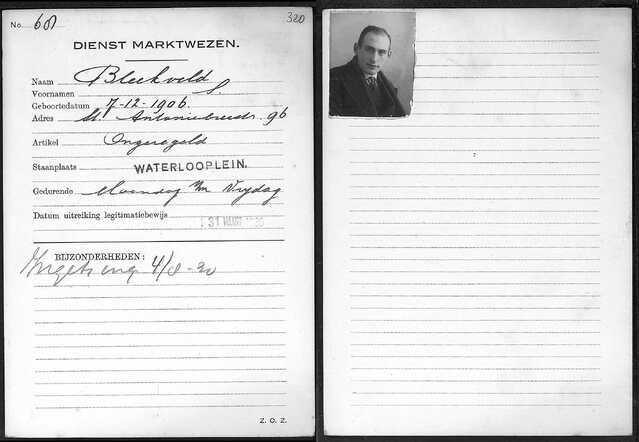 No. 601
320
DIENST MARKTWEZEN.
Naam Bleekveld
Voornamen S.
Geboortedatum 7-12-1906.
Adres St. Antoniebreestr. 96
Artikel Ongeregeld
Staanplaats WATERLOOPLEIN.
Gedurende Maandag t/m Vrijdag
Datum uitreiking legitimatiebewijs 31
BIJZONDERHEDEN:
4/8-30
Z. O. Z.